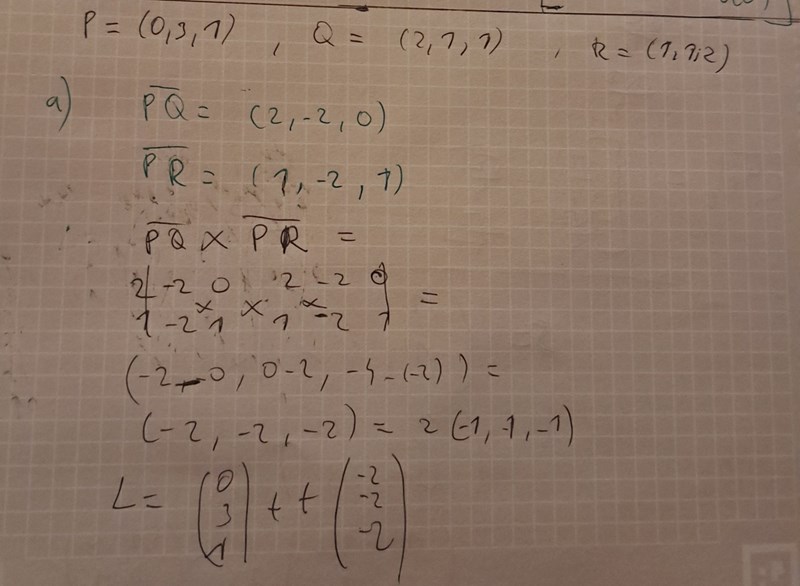 P = (0,3,1) , Q = (2,1,1) , R = (1,1,2)
a) PQ = (2,-2,0)
PR = (1,-2,1)
PQ × PR =
2 -2 0 2 -2 0
1 -2 1 1 -2 1 =
(-2-0, 0-2, -4-(-2)) =
(-2, -2, -2) = 2(-1,-1,-1)
L = (0 3 1) + t (-2 -2 -2)